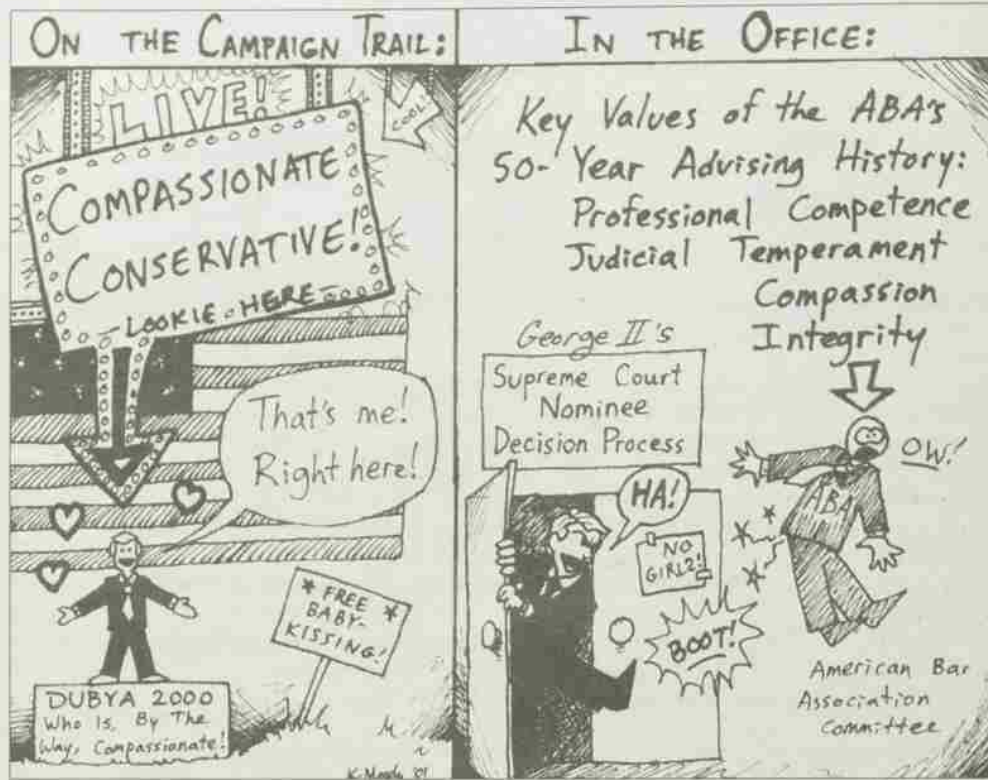 ON THE CAMPAIGN TRAIL:
LIVE!
COOL!
COMPASSIONATE
CONSERVATIVE!
-LOOKIE HERE-
That's me!
Right here!
* FREE *
BABY-
KISSING!
DUBYA 2000
Who Is, By The
Way, Compassionate!
'01
IN THE OFFICE:
Key Values of the ABA's
50-Year Advising History:
Professional Competence
Judicial Temperament
Compassion
Integrity
George II's
Supreme Court
Nominee
Decision Process
HA!
NO
GIRLZ!
BOOT!
OW!
ABA
American Bar
Association
Committee